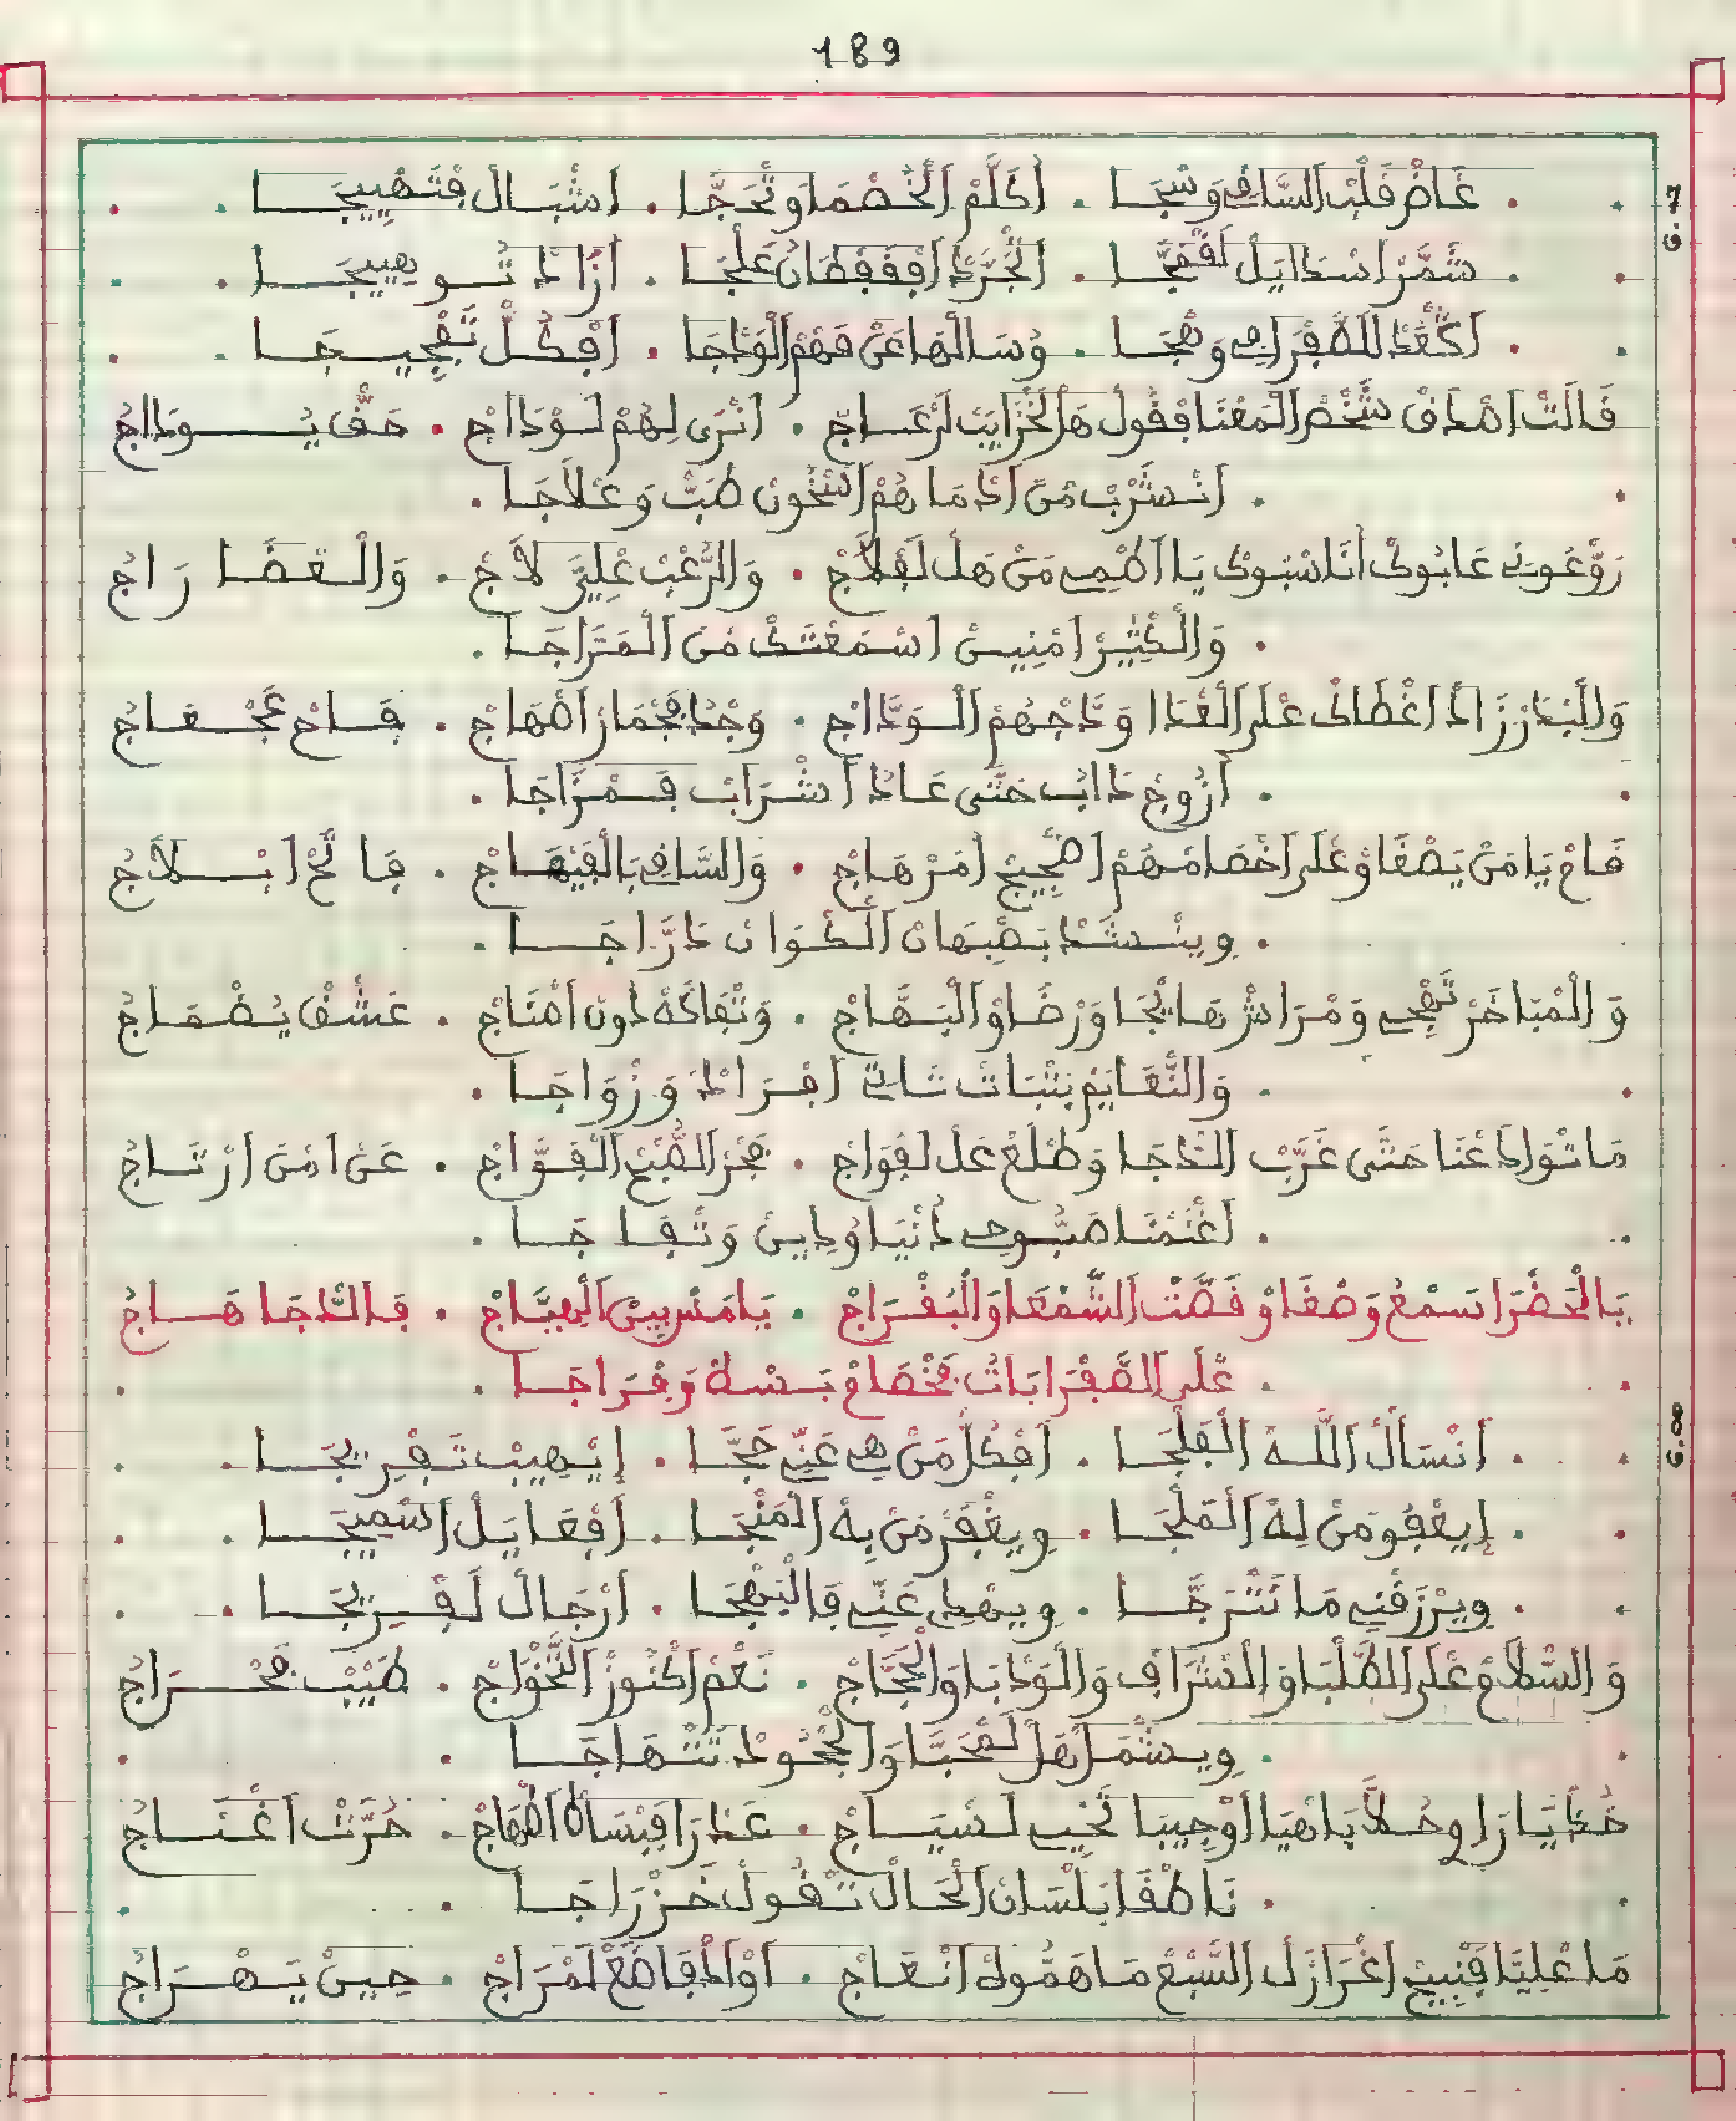 189
غَاضْ قَلْبْ السَّاقِي وَسْجَا . اَكَلَّمْ الْخَصْمَا وَتْحَجَّا . اَشْبَالْ فَتْهِيجَا
شَمَّرْ اسْدَايَلْ لَقْمَجَّا . اَتْجَرَّدْ اَفْقَفْطَانْ عَلْجَا . اَزَادْ تُوهِيجَا
اَكَعْدْ للصُّفْرَا هِي وَهْجَا . وُسَالْهَا عَنْ فَهْمْ الْوَدْجَا . اَفْكُلّْ تَفْجِيجَا
قَالَتْ اَصْدَافْ شَخْصْ الْمَعْنَا فْقُولْ هَلْ الْخْزَايَبْ لَرْعَاجْ . اَنْرَى لِهُمْ لَوْدَاجْ . حَقّْ يُودَاجْ
اَنْشْرَبْ مَنْ اَدْمَاهُمْ اَسْخُونْ طَبّْ وَعْلاَجَا
رَوّْعُونِي عَابُوكْ اَنَا سْبُوكْ يَا اَصْمِي مَنْ هَلْ لَفْلاَجْ . وَالرُّعْبْ عْلِيَّ لاَجْ . وَالْقَضَا رَاجْ
وَالْكْثِيرْ اَمْنِينْ اَسْمَعْتَكْ مَنْ الْمَزَاجَا
وَالْبْدَرْ زَادْ اَغْطَاكْ عْلَى الْعْدَا وَدَّاجْهُمْ الْوَدَّاجْ . وَجْدْ بَجْمَارْ اَصْهَاجْ . قَاحْ عَجْعَاجْ
اَزُوجْ دَابْ حَتَّى عَادْ اَشْرَابْ فَمْزَاجَا
قَاحْ يَا مَنْ يَصْغَاوْ عْلَى اَخْصَامْهُمْ اَضْجِيجْ اَمْرْهَاجْ . وَالسَّاقِي بَالْفَيْهَاجْ . فَالْحْ اَبْلاَجْ
وِينْشْدْ بَصْبَهَانْ اَلْكْوَانْ دَرَّاجَا
وَالْمْبَاخَرْ تَهْجِي وَمْرَاشْ هَايْجَا وَرْضَاوْ الْبَهَّاجْ . وَتْفَاكَهْ دُونْ اَمْنَاجْ . عَشْقْ يُصْمَاجْ
وَالنّْعَايَمْ بَثْبَاتْ شَايْ اَفْرَادْ وَزْوَاجَا
مَا شْوَادْعْنَا حَتَّى غَرَّبْ الدْجَا وَطْلَعْ عَلْ لَفْوَاجْ . فَجْرْ الصُّبْحْ الْفَوَّاجْ . عَنْ اَمْنْ اَرْتَاجْ
اَغْنَمْنَا صَبُّوحِي دُنْيَا وُدِينْ وَتْفَاجَا
بَالْحَضْرَا نَسْمْعْ وَصْغَاوْ قَصَّتْ الشَّمْعَا وَالْبُفْرَاجْ . يَا مَنْ بِينْ الْهِيَّاجْ . فَالدْجَا هَاجْ
عْلَى الصَّفْرَا بَاتْ فَخْصَامْ بَسْطْ وَفْرَاجَا
اَنْسَالْ اَللَّهْ الْفَلْجَا . اَفْكُلّْ مَنْ هِي عَنِّي حَجَّا . اِيْهِيبْ تَفْرِيجَا
اِيعْفُو مَنْ لِهْ الْمَلْجَا . وِيغْفَرْ مَنْ بِهْ الْمَنْجَا . اَفْعَايَلْ اَسْمِيجَا
وِيرْزَقْنِي مَا نَتْرَجَّا . وِيهْدِي عَنِّي فَالْبَهْجَا . اَرْجَالْ لَقْرِيجَا
وَالسْلاَمْ عْلَى الطَّلْبَا وَالشْرَافْ وَالْوَدْبَا وَالْحْجَّاجْ . نَعْمْ اَكْنُوزْ التَّخْوَاجْ . طَيَّبْ فَحْرَاجْ
وِيشْمَلْ هَلْ لَمْحَبَّا وَالْجُّودْ تَنْهَاجَا
خُدْ يَا رَاوِي حُلاَّ بَاهْيَا اَوْجِيبَا تَخْبِي لَسْيَاجْ . عَدْرَا فِيْسَانْ اَضْهَاجْ . حُرَّتْ اَغْنَاجْ
نَاطْقَا بَلْسَانْ اَلْحَالْ تْقُولْ خَزْرَاجَا
مَا عْلِيَّا فَنْبِيحْ اَغْرَازَلْ السّْبَعْ مَا هَمُّولْهْ اَنْعَاجْ . اَوْ الْدْفَاضَعْ لَمْرَاجْ . حِينْ يَهْرَاجْ
ق7
ق8